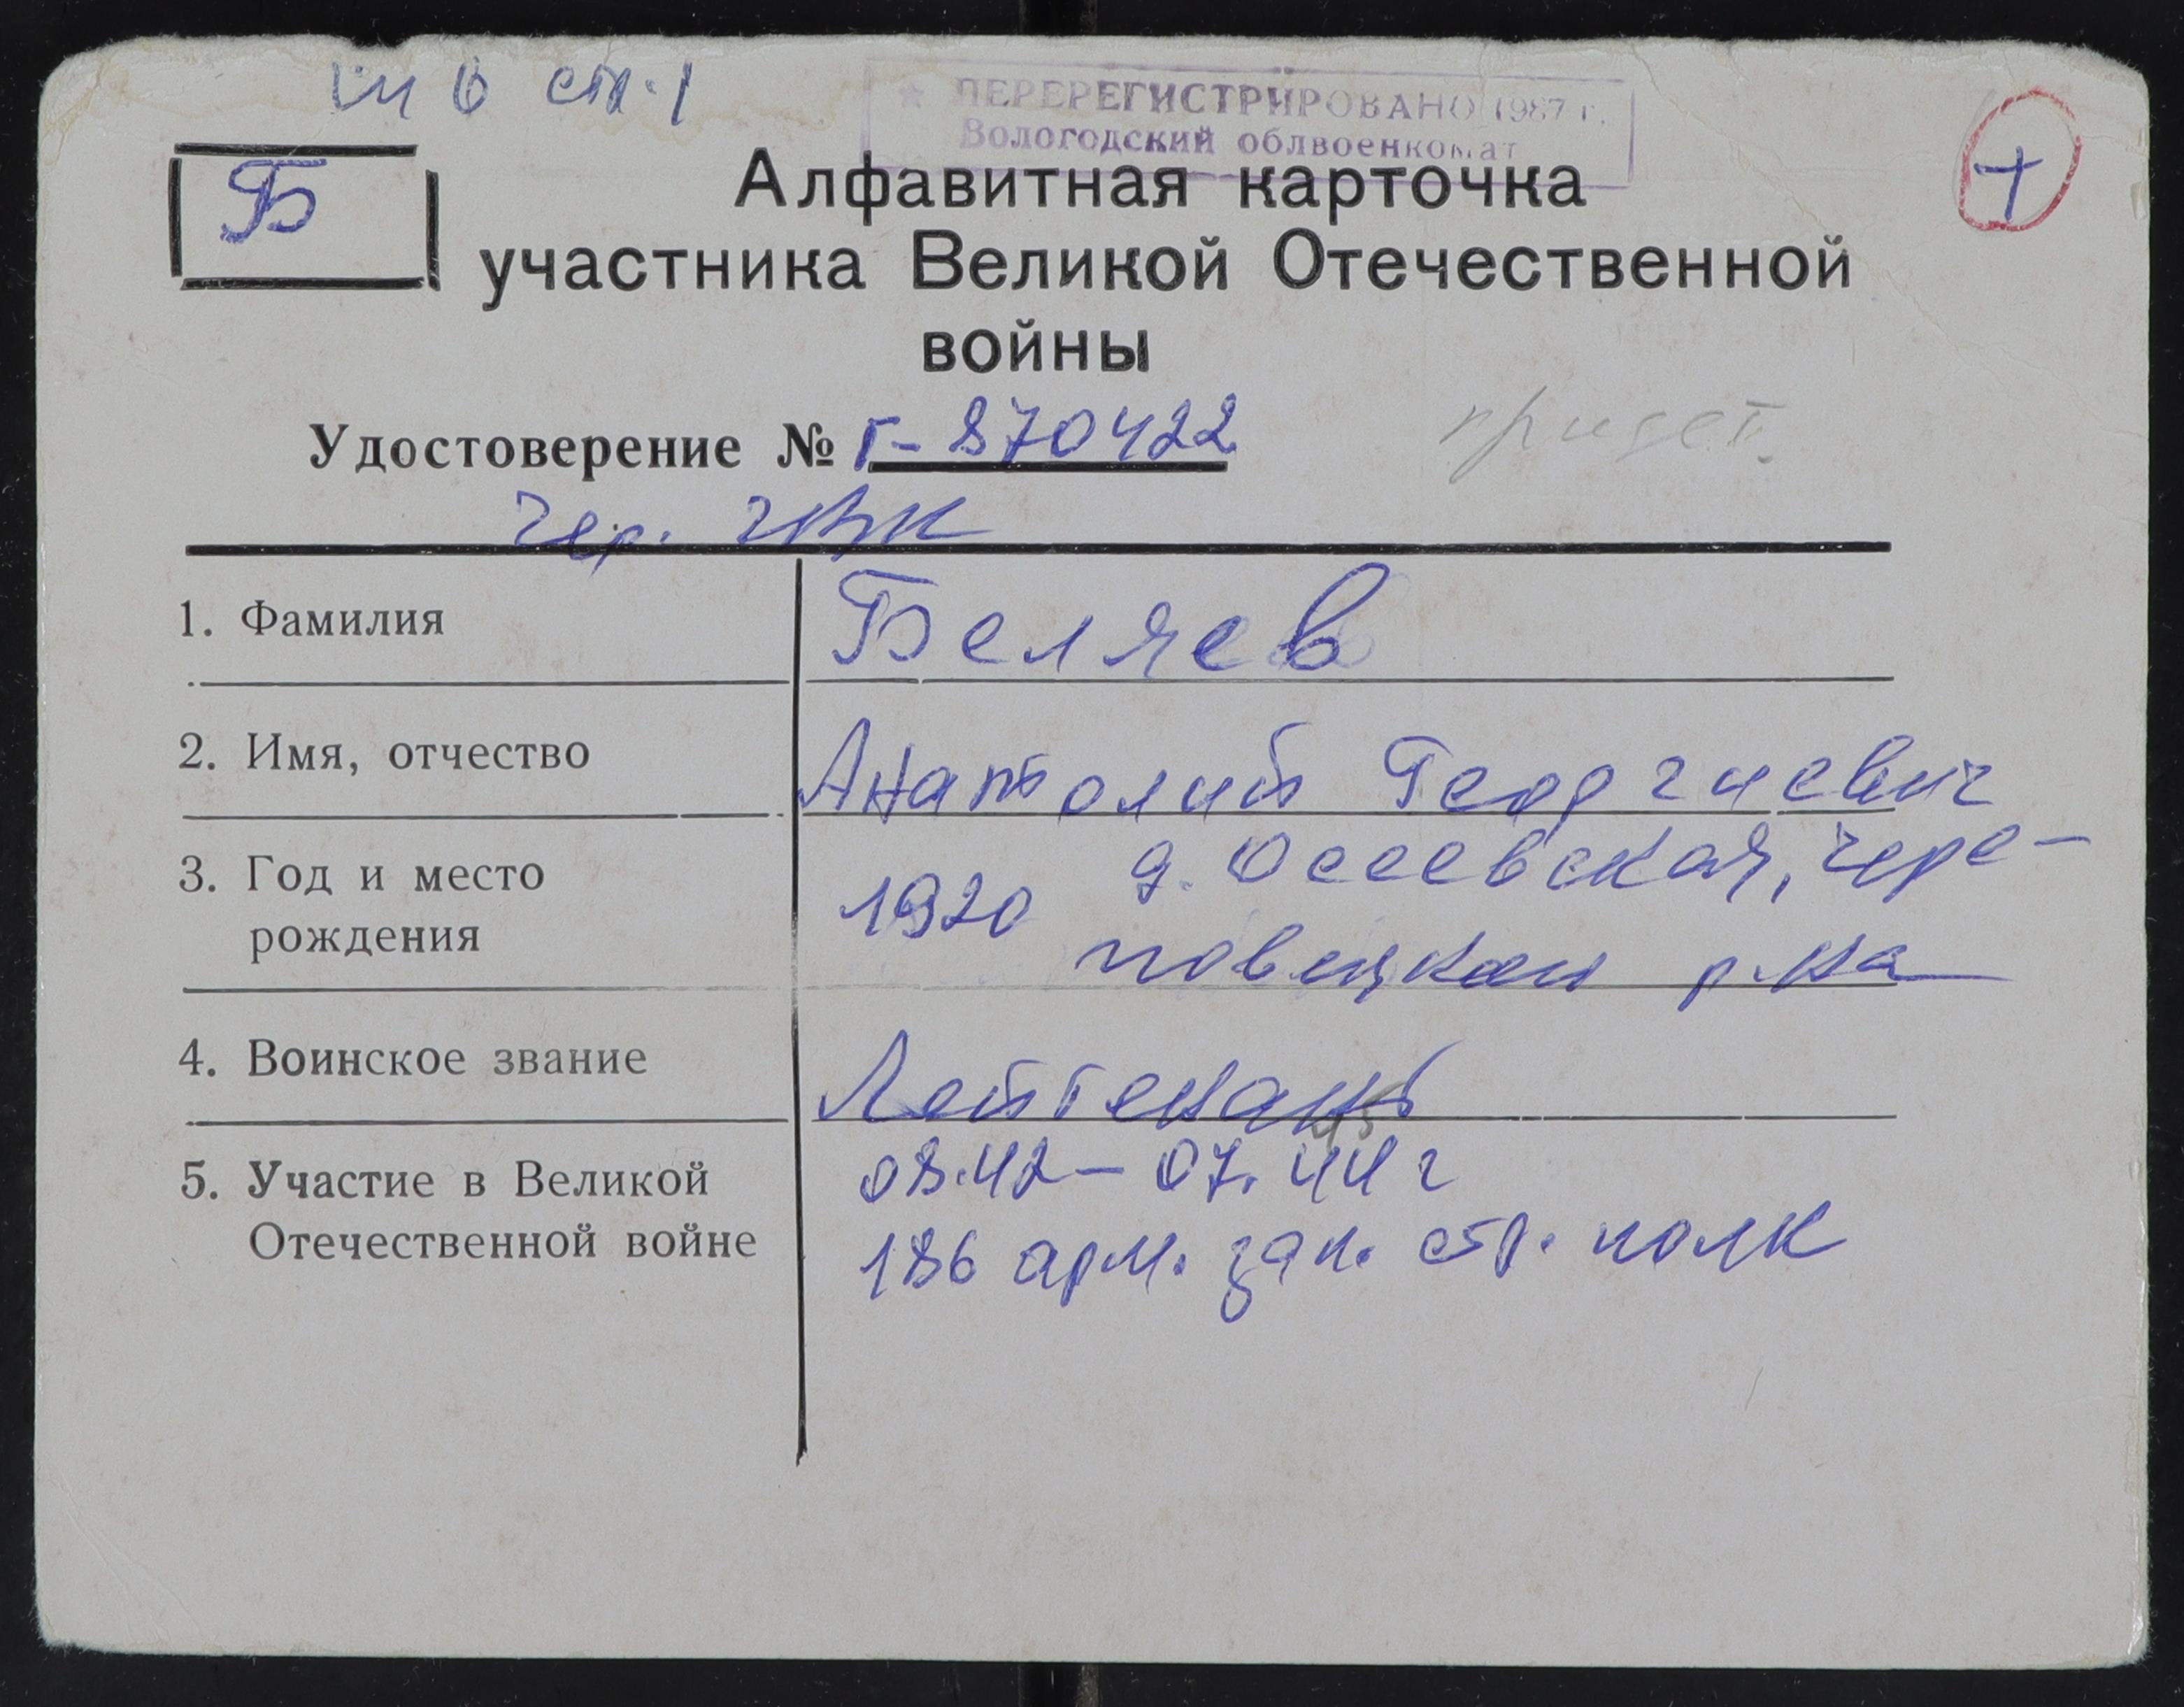 ПЕРЕРЕГИСТРИРОВАНО 1987 г.
Вологодский облвоенкомат
Б
+
Алфавитная карточка
участника Великой Отечественной
войны
Удостоверение № Г-870422
придет.
Чер. ГВК
1. Фамилия
Беляев
2. Имя, отчество
Анатолий Георгиевич
3. Год и место
рождения
1920 д. Осеевская, Чере-
повецкий р-на
4. Воинское звание
Лейтенант
5. Участие в Великой
Отечественной войне
45
08.42 – 07.44 г
186 арм. зап. стр. полк